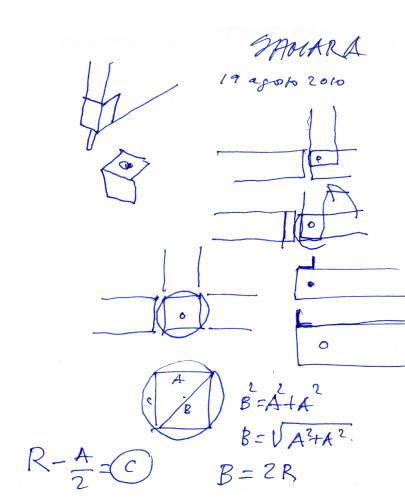 SAHARA
19 agosto 2010
A
C
B
B² = A² + A²
B = √A² + A²
R - A/2 = C
B = 2R